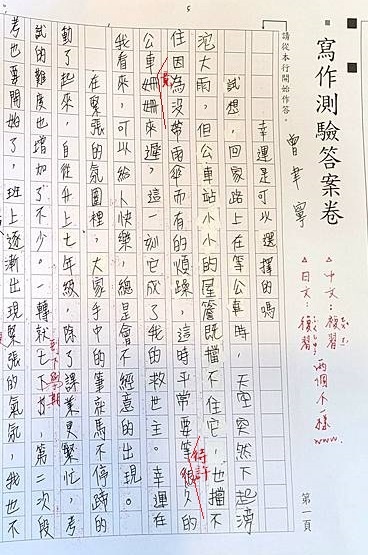 5
寫作測驗答案卷
第一頁
請從本行開始作答。
曾聿寧
△中文：復習
△日文：復習
兩個不一樣
www.
幸運是可以選擇的嗎
試想，回家路上在等公車時，天空突然下起滂
沱大雨，但公車站小小的屋簷既擋不住它，也擋不
住因為沒帶雨傘而有的煩躁，這時平常要等很久的
公車姍姍來遲，這一刻它成了我的救世主。幸運在
我看來，可以給人快樂，總是會不經意的出現。
在緊張的氛圍裡，大家手中的筆就馬不停蹄的
動了起來，自從升上七年級，除了課業更緊忙，考
試的難度也增加了不少。一轉就七下了，第二次段
考也要開始了，班上逐漸出現緊張的氣氛，我也不
竟
待許
到下學期